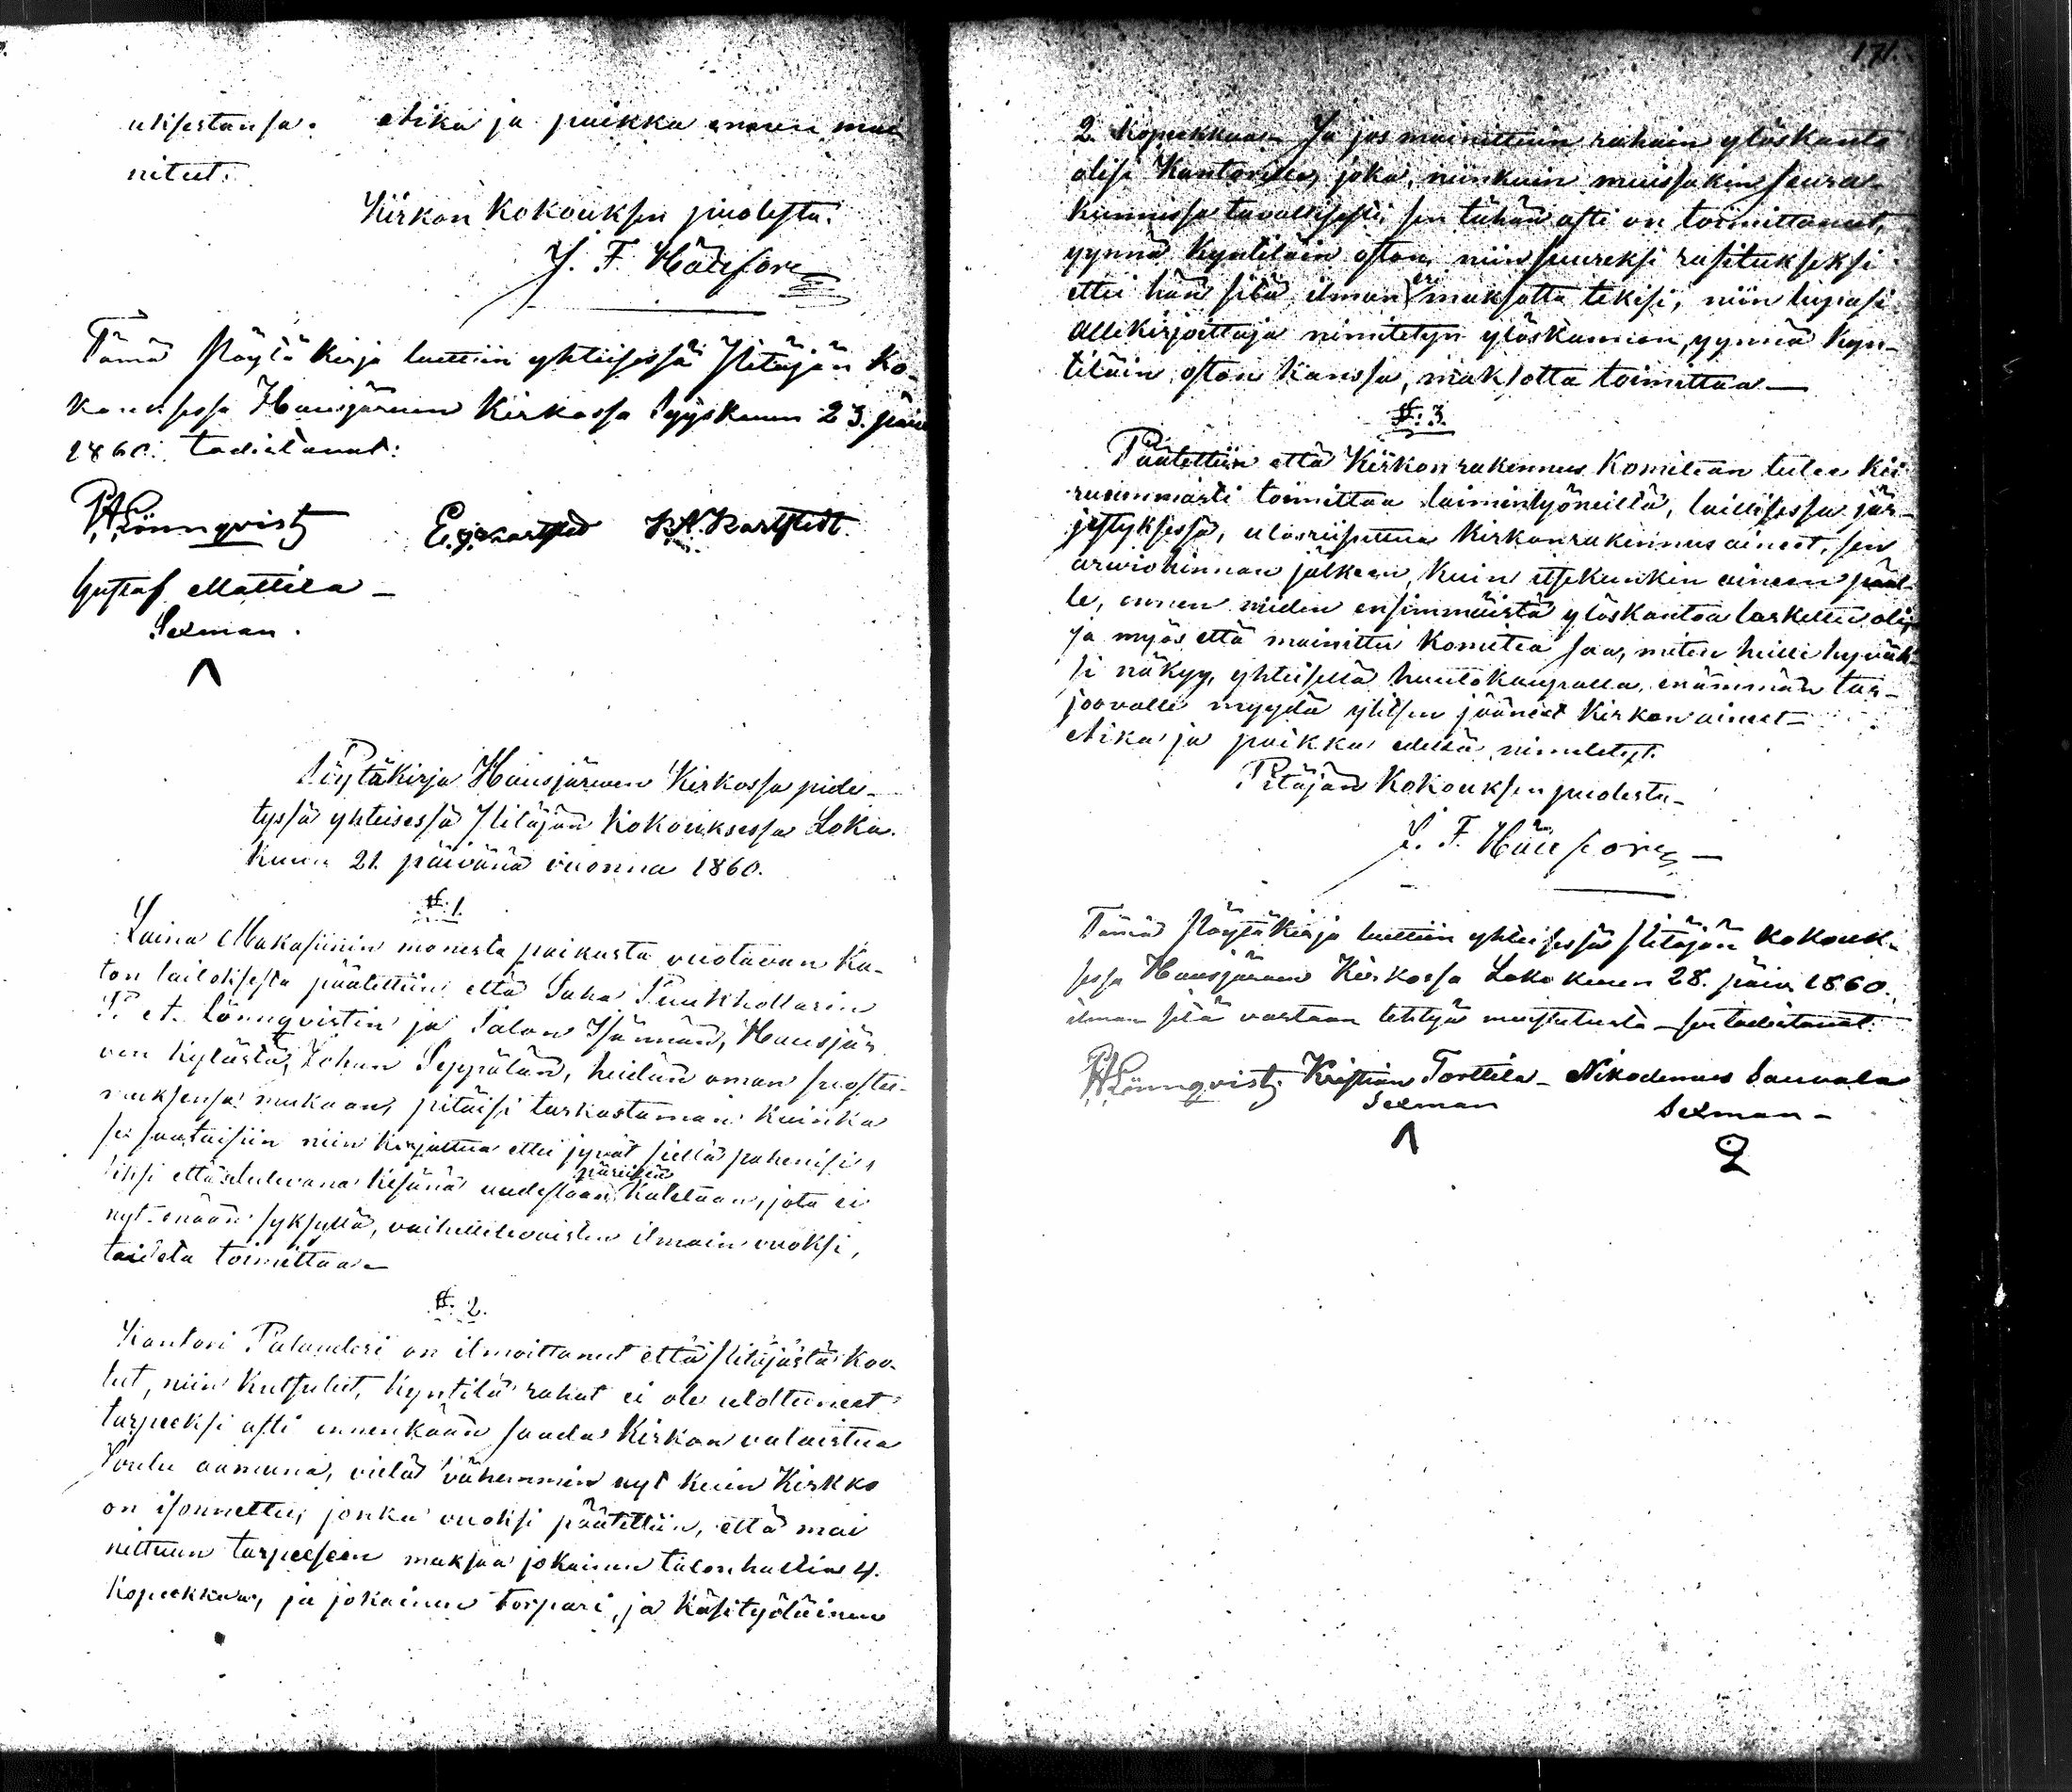 uksestansa. Aika ja paikka ennen mai
nitut.
Kirkon Kokouksen puolesta.
J. F. Hällfors
Tämä Pöytä Kirja luettiin yhteisessä Pitäjän Ko-
kouksessa Hausjärwen Kirkossa Syyskuun 23. päiv
1860. todistavat:
P A Lönnqvist E. J. Kartsted K A Kartstedt.
Gustaf Mattila
Sexman.
Pöytäkirja Hausjärwen Kirkossa pide-
tyssä yhteisessä Pitäjän Kokouksessa Loka-
kuun 21. päivänä vuonna 1860.
§. 1.
Laina Makasiinin monesta paikasta vuotavan Ka-
ton laitoksesta päätettiin että Saha Puukhollarin
P. A. Lönnqvistin ja Talon Isännän, Hausjär
ven kylästä, Johan Seppälän, heidän oman suostu-
muksensa mukaan, pitäisi tarkastaman kuinka
se saataisiin niin korjattua ettei jyvät siellä pahenisi,
siksi että tulevana kesänä uudestaan päreillä katetaan, jota ei
nyt enään syksyllä, vaihettelevaisten ilmain vuoksi,
taideta toimittaa.
§. 2.
Kantori Palanderi on ilmoittanut että Pitäjästä koo-
tut, niin kutsutut, kyntilä rahat ei ole ulottuneet
tarpeeksi asti ennenkään saada Kirkon valaistua
Joulu aamuna, vielä vähemmin nyt kuin Kirkko
on isonnettu, jonka vuoksi päätettiin, että mai
nittuun tarpeeseen maksaa jokainen talonhaltia 4.
kopeekkaa, ja jokainen torpari, ja käsityöläinen
171.
2. kopeekkaa. Ja jos mainittuin rahain ylöskanto
olisi Kantorille, joka, niinkuin muissakin seura-
kunnissa tavallisesti, sen tähän asti on toimittanut,
ynnä kyntiläin oston, niin suureksi rasitukseksi
ettei hän sitä ilman maksotta tekisi, niin lupasi
allekirjoittaja nimitetyn ylöskannon, ynnä kyn-
tiläin oston kanssa, maksotta toimittaa
§. 3.
Päätettiin että Kirkonrakennus Komitean tulee kii
ruummasti toimittaa laimintyöneiltä, laillisessa jär-
jestyksessä, ulosriisuttua Kirkonrakennus aineet, sen
arwiohinnan jälkeen, kuin itsekunkin aineen pääl-
le, ennen niiden ensimmäistä ylöskantoa laskettu oli,
ja myös että mainittu Komitea saa, miten heille hyväk-
si näkyy, yhteisellä huutokaupalla enämmän tar-
joovalle myydä ylitsen jääneet Kirkon aineet
Aika ja paikka edellä nimitetyt.
Pitäjän Kokouksen puolesta
J. F. Hällfors
Tämä Pöytäkirja luettiin yhteisessä Pitäjän Kokouk-
sessa Hausjärwen Kirkossa Lokakuun 28. päiv 1860.
ilman sitä vastaan tehtyä muistutusta sen todistavat.
P A Lönnqvist. Kristian Torttila Nikodemus Sauvala
Sexman Sexman